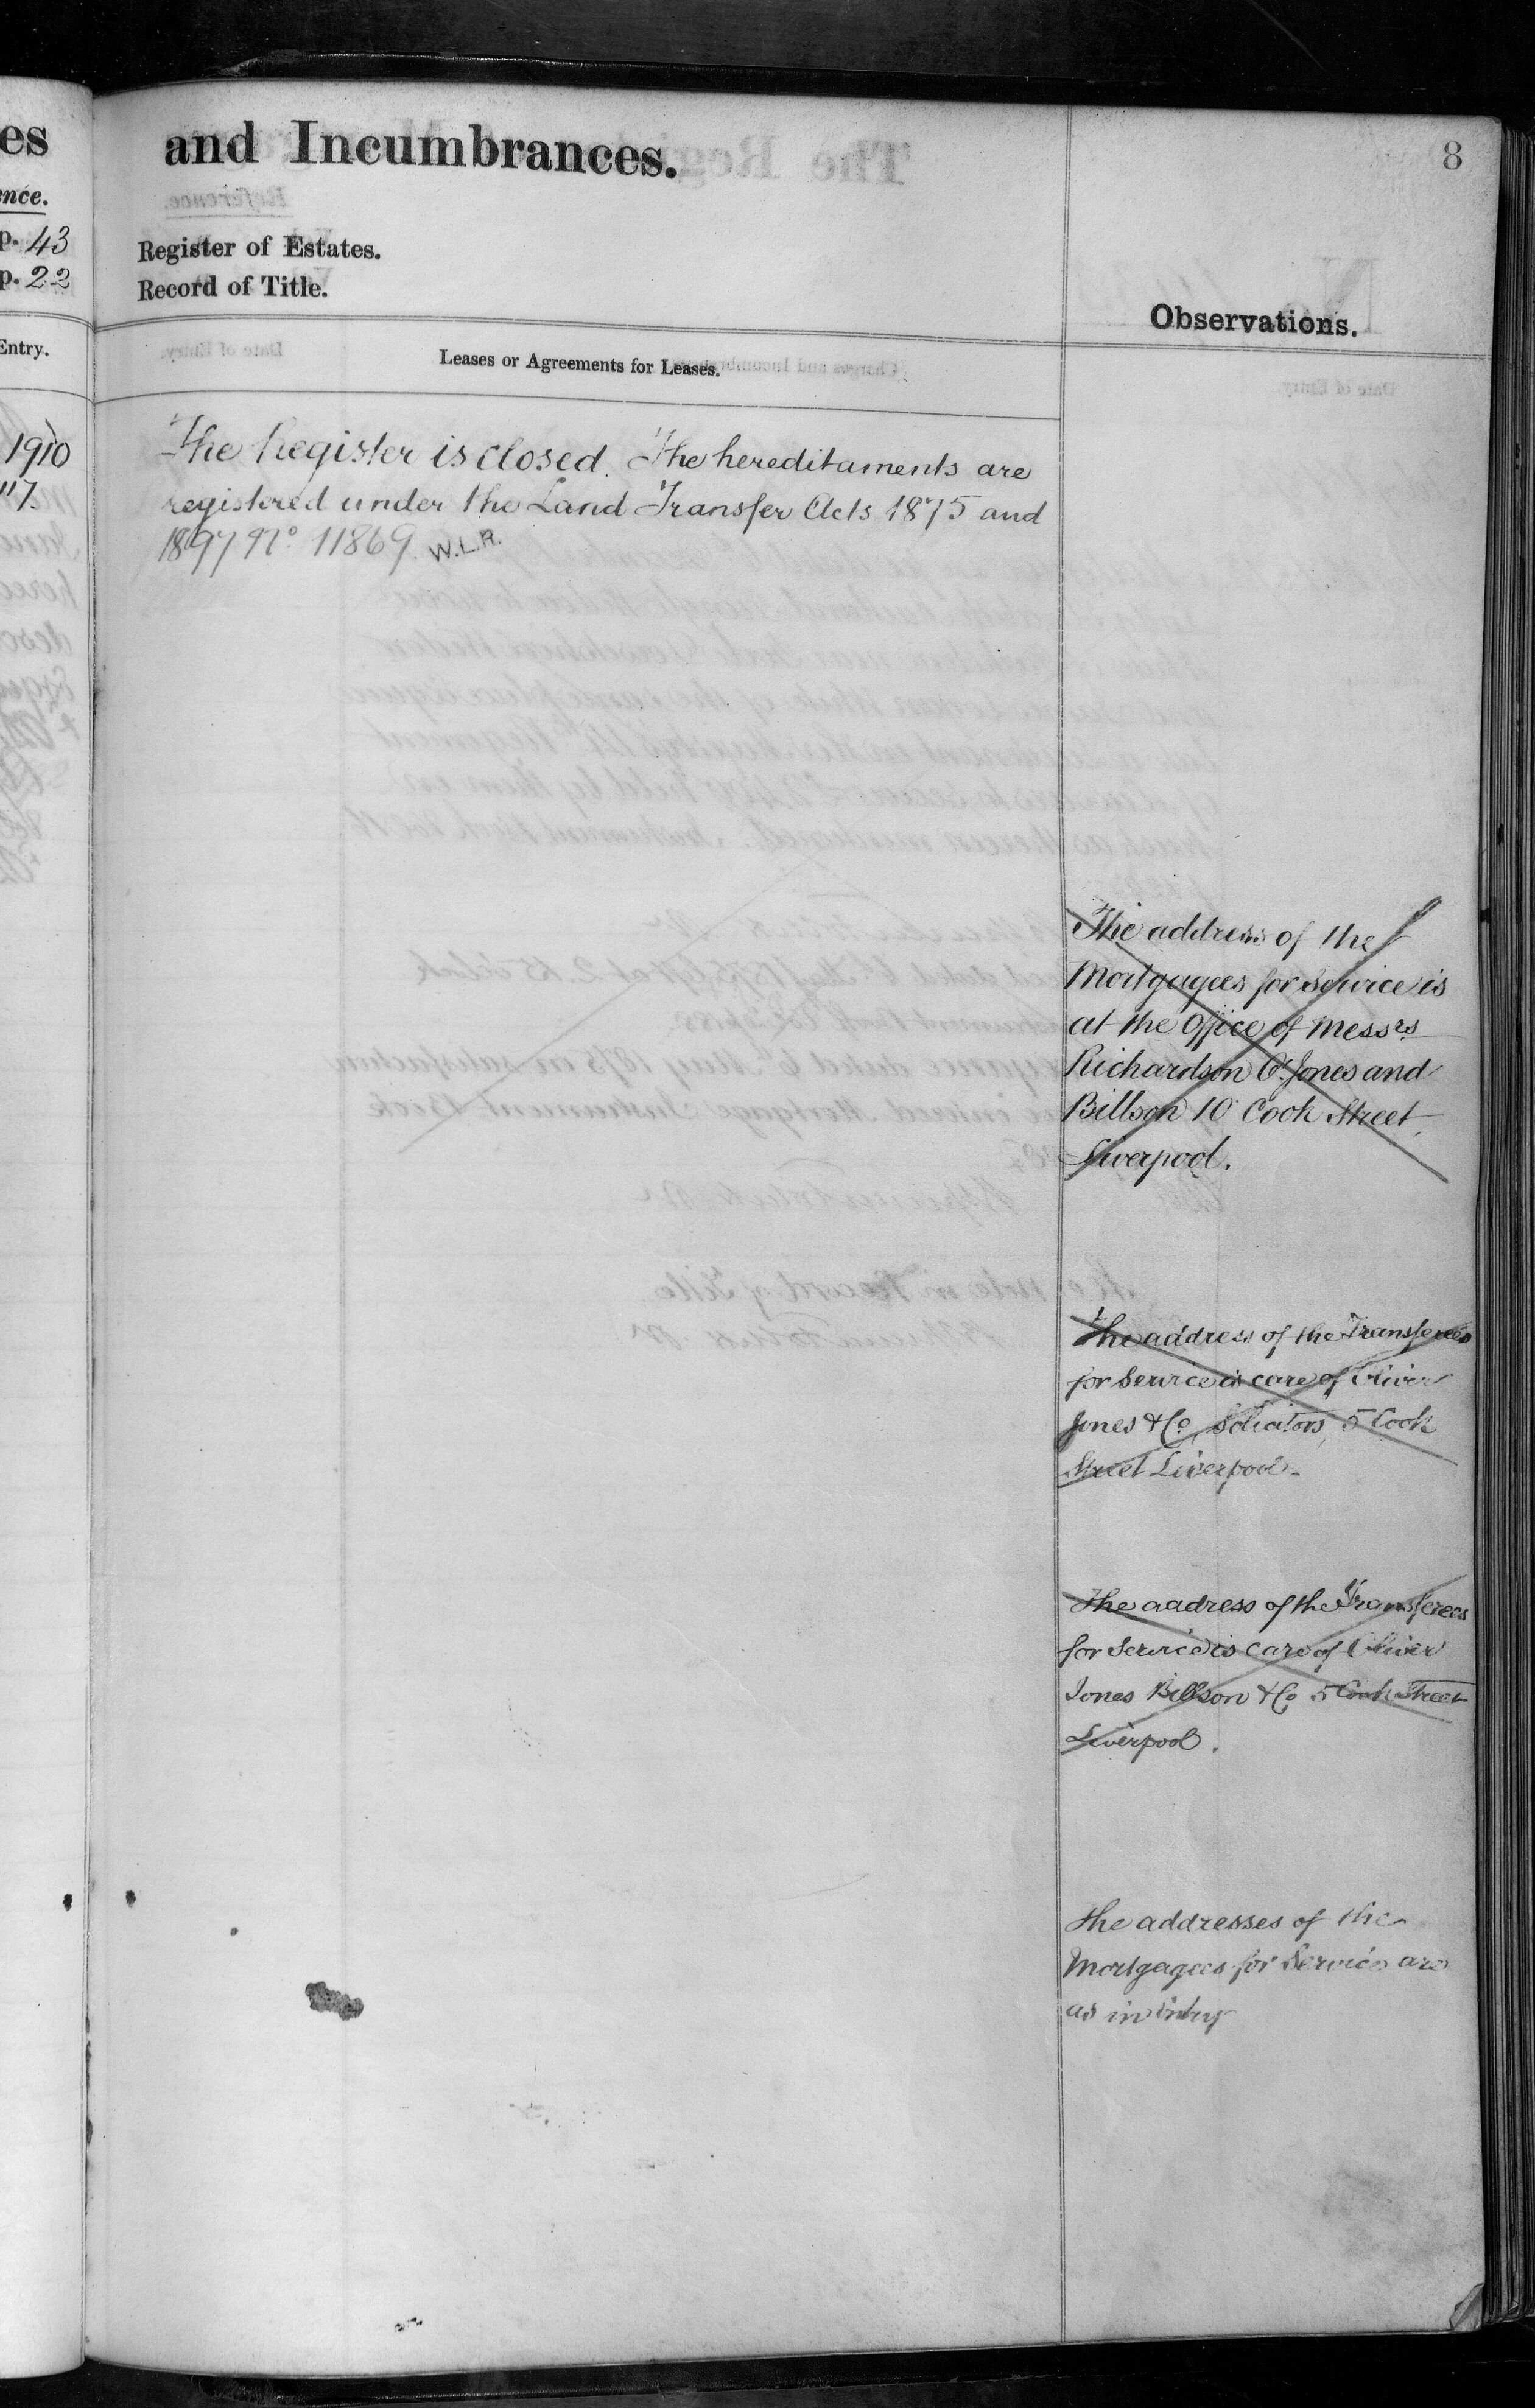 es
ence.
p. 43
p. 22
Entry.
1910
"7.
and Incumbrances.
8
Register of Estates.
Record of Title.
Observations.
Leases or Agreements for Leases.
The Register is closed. The hereditaments are
registered under the Land Transfer Acts 1875 and
1897 No. 11869. W.L.R.
The address of the
Mortgagees for Service is
at the Office of Messrs
Richardson O. Jones and
Billson 10 Cook Street
Liverpool.
The address of the Transferees
for Service is care of Oliver
Jones & Co, Solicitors, 5 Cook
Street Liverpool-
The address of the Transferees
for Service is care of Oliver
Jones Billson & Co 5 Cook Street
Liverpool.
The addresses of the
Mortgagees for Service are
as in Entry